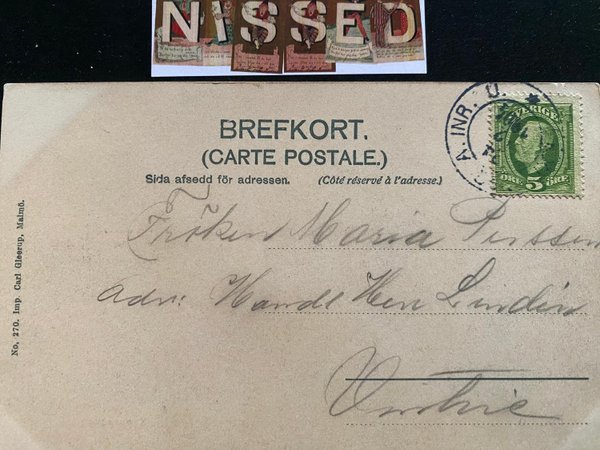 NISSED
BREFKORT.
(CARTE POSTALE.)
Sida afsedd för adressen. (Côté réservé à l'adresse.)
A. INR. U.
SVERIGE
ÖRE 5 ÖRE
Fröken Maria Persson
adr: Handl Herr Lundin
No. 270. Imp. Carl Gleerup, Malmö.